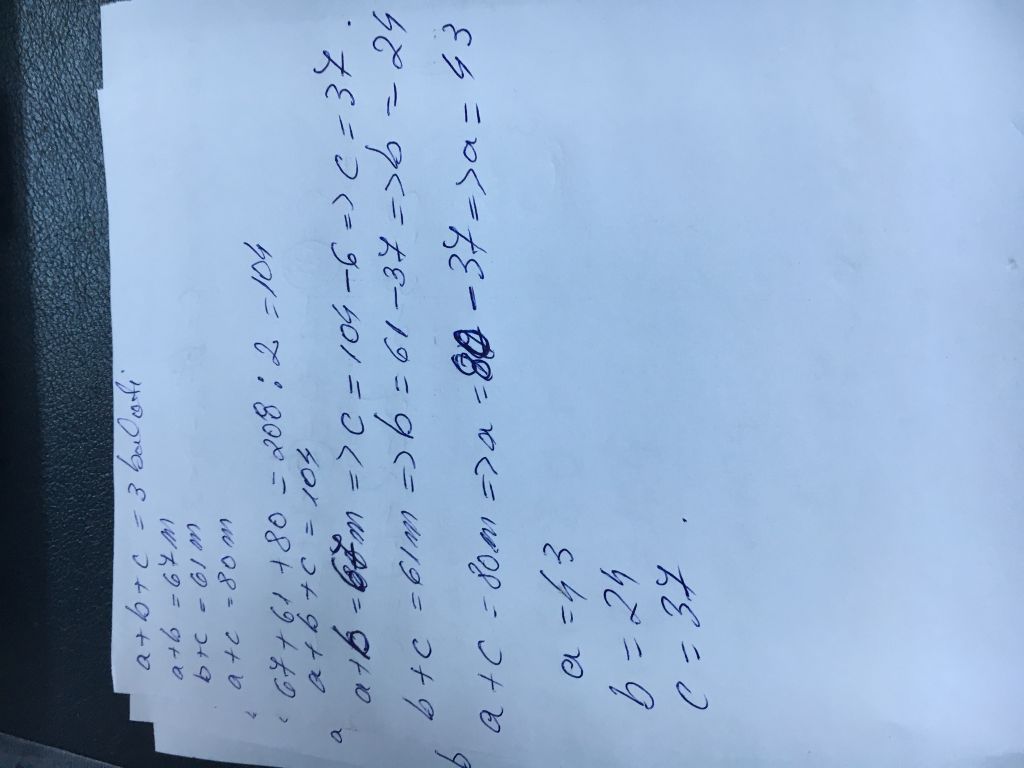 a+b+c = 3 baloti
a+b = 67m
b+c = 61m
a+c = 80m
67+61+80 = 208 : 2 = 104
a+b+c = 104
a+b = 67m => c = 104 - 6 => c = 37.
b+c = 61m => b = 61 - 37 => b = 24
a+c = 80m => a = 80 - 37 => a = 43
a = 43
b = 24
c = 37.